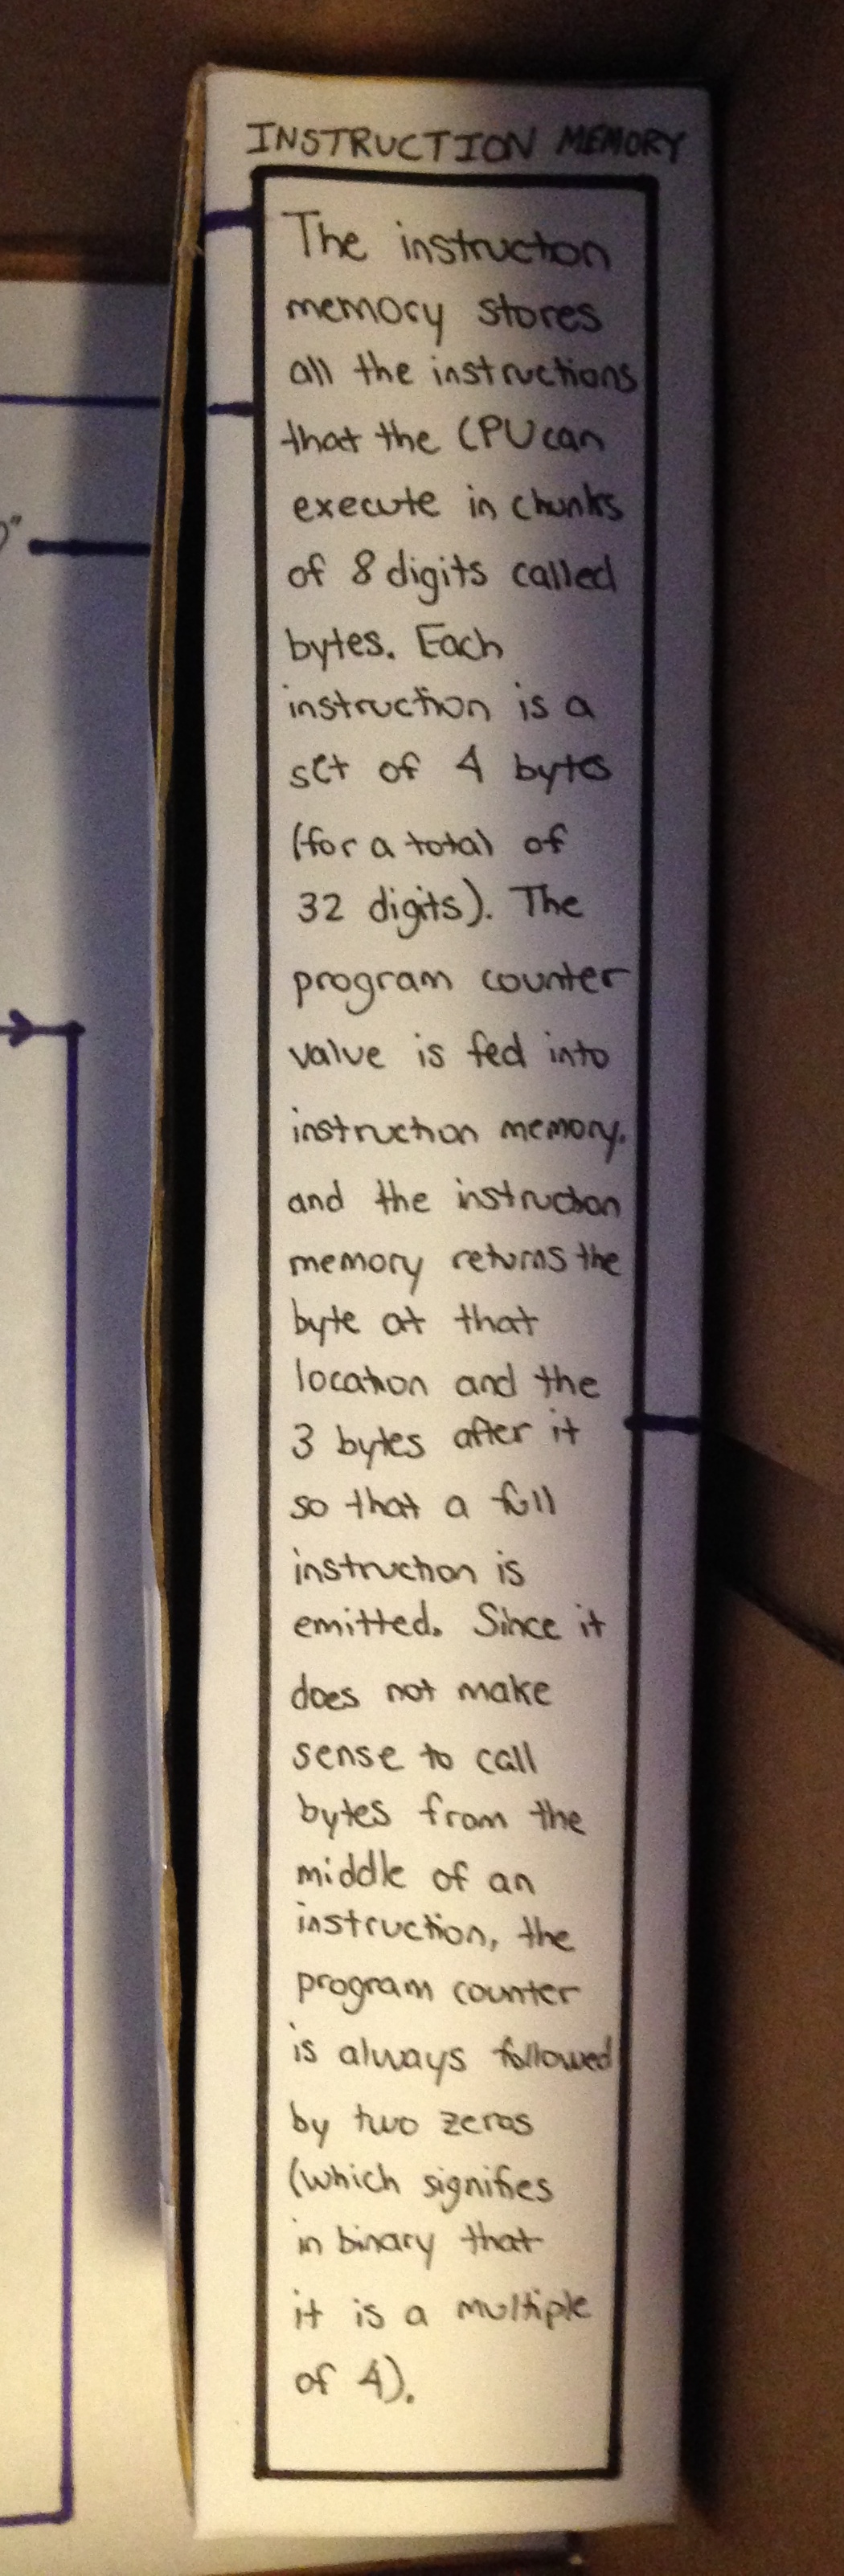 INSTRUCTION MEMORY
The instruction
memory stores
all the instructions
that the CPU can
execute in chunks
of 8 digits called
bytes. Each
instruction is a
set of 4 bytes
(for a total of
32 digits). The
program counter
value is fed into
instruction memory,
and the instruction
memory returns the
byte at that
location and the
3 bytes after it
so that a full
instruction is
emitted. Since it
does not make
sense to call
bytes from the
middle of an
instruction, the
program counter
is always followed
by two zeros
(which signifies
in binary that
it is a multiple
of 4).